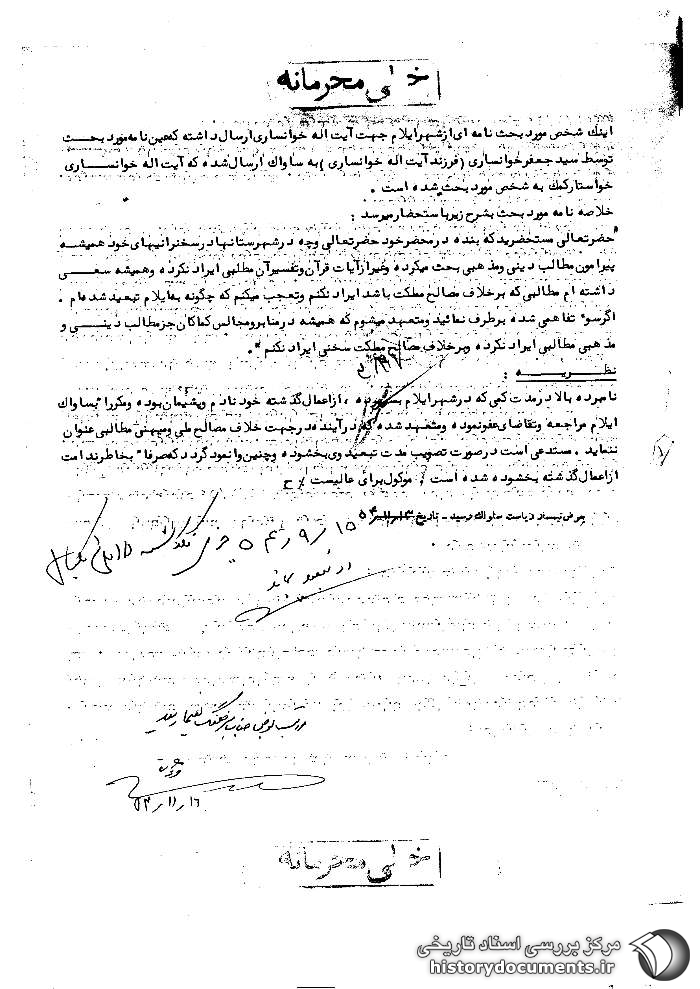 خیلی محرمانه
اینك شخص مورد بحث نامه ای از شهر ایلام جهت آیت اله خوانساری ارسال داشته که عین نامه مورد بحث
توسط سید جعفر خوانساری (فرزند آیت اله خوانساری) به ساواك ارسال شده که آیت اله خوانساری
خواستار کمك به شخص مورد بحث شده است .
خلاصه نامه مورد بحث بشرح زیر باستحضار میرسد :
"حضرتعالی مستحضرید که بنده در محضر خود حضرتعالی وچه در شهرستانها در سخنرانیهای خود همیشه
پیرامون مطالب دینی ومذهبی بحث میکرده وغیر از آیات قرآن وتفسیرآن مطلبی ایراد نکرده وهمیشه سعی
داشته ام مطالبی که برخلاف مصالح مملکت باشد ایراد نکنم وتعجب میکنم که چگونه به ایلام تبعید شده ام .
اگر سو تفاهمی شده برطرف نمائید ومتعهد میشوم که همیشه در منابر ومجالس کماکان جز مطالب دینی و
مذهبی مطالبی ایراد نکرده وبرخلاف مصالح مملکت سخنی ایراد نکنم ."
نظریه :
نامبرده بالا در مدت کمی که در شهر ایلام بسر برده ، از اعمال گذشته خود نادم وپشیمان بوده ومکررا "بساواك
ایلام مراجعه وتقاضای عفو نموده ومتعهد شده که در آینده در جهت خلاف مصالح ملی ومیهنی مطالبی عنوان
ننماید . مستدعی است در صورت تصویب مدت تبعید وی بخشوده وچنین وانمود گردد که صرفا" بخاطر ندامت
از اعمال گذشته بخشوده شده است / موکول برای عالیست / ح
بعرض تیمسار ریاست ساواك رسید - تاریخ
در تبعید بماند
۱۶ ر ۱۱ ر ۵۳
خیلی محرمانه
مرکز بررسی اسناد تاریخی
historydocuments.ir